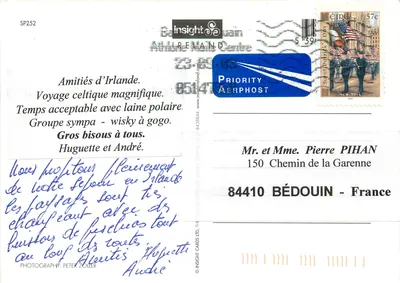 SP252
Insight
IRELAND
Athlone Mails Centre
23-05-03
ÉIRE 57c
PRIORITY
AERPHOST
Amitiés d'Irlande.
Voyage celtique magnifique.
Temps acceptable avec laine polaire.
Groupe sympa - wisky à gogo.
Gros bisous à tous.
Huguette et André.
Mr. et Mme. Pierre PIHAN
150 Chemin de la Garenne
84410 BÉDOUIN - France
Nous profitons pleinement
de notre séjour en Irlande
les paysages sont très
changeant avec des
buissons de fuschias tout
au long des routes
Amitiés Huguette
André
PHOTOGRAPHY: PETER ZOELLER
© INSIGHT CARDS LTD.